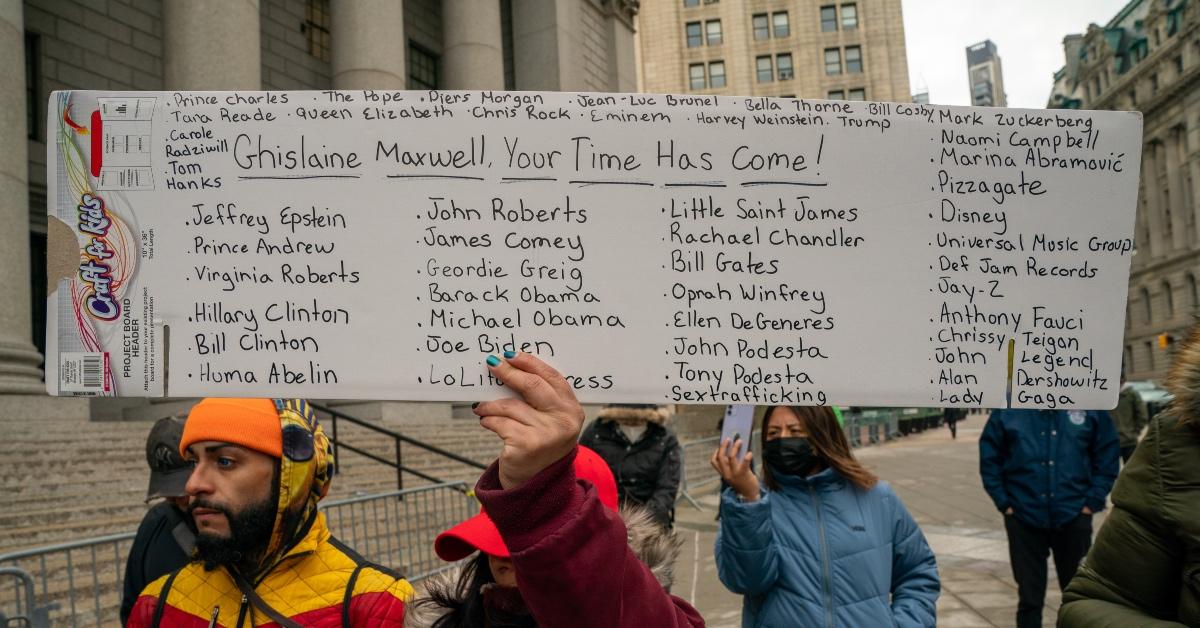 · Prince charles · The Pope · Piers Morgan · Jean-Luc Brunel · Bella Thorne · Bill Cosby
· Tara Reade · Queen Elizabeth · Chris Rock · Eminem · Harvey Weinstein. Trump
· Carole
Radziwill
· Tom
Hanks
Ghislaine Maxwell, Your Time Has Come!
· Jeffrey Epstein
· Prince Andrew
· Virginia Roberts
· Hillary Clinton
· Bill Clinton
· Huma Abelin
· John Roberts
· James Comey
· Geordie Greig
· Barack Obama
· Michael Obama
· Joe Biden
· LoLit ress
· Little Saint James
· Rachael Chandler
· Bill Gates
· Oprah Winfrey
· Ellen DeGeneres
· John Podesta
· Tony Podesta
· Sextrafficking
Mark Zuckerberg
· Naomi Campbell
· Marina Abramović
· Pizzagate
· Disney
· Universal Music Group
· Def Jam Records
· Jay-Z
· Anthony Fauci
· Chrissy Teigan
· John Legend
· Alan Dershowitz
· Lady Gaga
Craft for Kids
PROJECT BOARD
HEADER
10" x 36"
Total Length
Attach this header to your existing project
board for a complete presentation